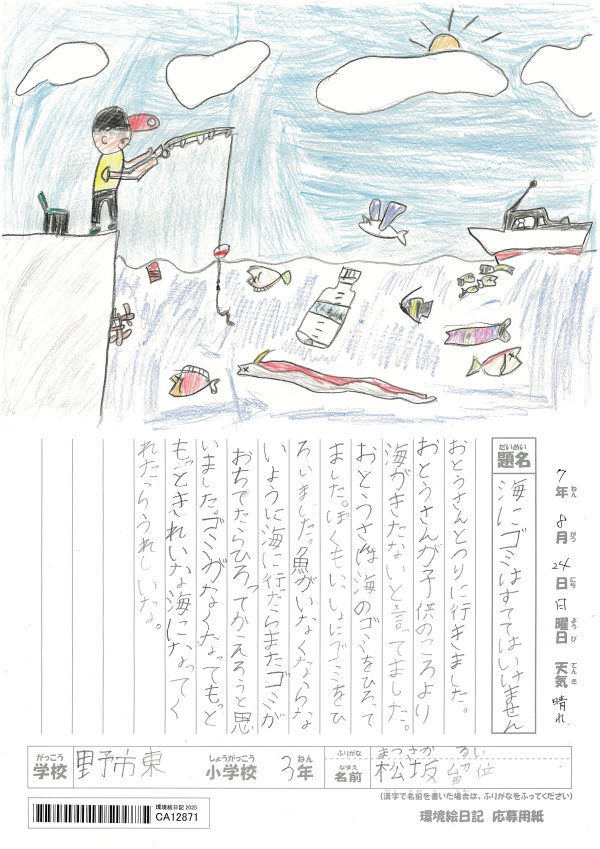 7年 8月 24日 日曜日 天気 晴れ
ねん がつ にち ようび てんき
だいめい
題名 海にゴミはすててはいけません
おとうさんとつりに行きました。
おとうさんが子供のころより
海がきたないと言てました。
おとうさんは海のゴミをひろって
ました。ぼくもいっしょにゴミをひ
ろいました。魚がいなくならな
いように海に行だらまたゴミが
おちてたらひろってかえろうと思
いました。ゴミがなくなってもっと
もっときれいな海になってく
れたらうれしいな。
がっこう しょうがっこう ねん ふりがな まつざか るい
学校 野市東 小学校 3年 なまえ 名前 松坂 留位
(漢字で名前を書いた場合は、ふりがなをふってください)
環境絵日記2025
CA12871
環境絵日記 応募用紙